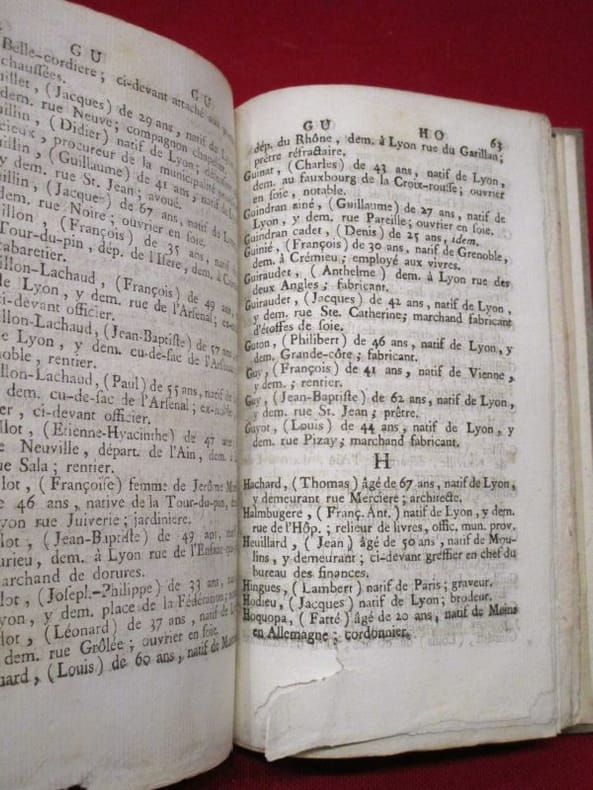 GU
GU
Belle-cordiere; ci-devant attaché aux
chaussées.
uillet, (Jacques) de 29 ans, natif de
dem. rue Neuve; compagnon chapelier.
uillin, (Didier) natif de Lyon;
cieux, procureur de la municipalité
uillin, (Guillaume) de 41 ans, natif
y dem. rue St. Jean; avoué.
uillin, (Jacques) de 67 ans, natif de
dem. rue Noire; ouvrier en soie.
uillon, (François) de 35 ans,
Tour-du-pin, dép. de l'Isere, dem. à
cabaretier.
illon-Lachaud, (François) de 49 ans,
de Lyon, y dem. rue de l'Arsenal;
ci-devant officier.
illon-Lachaud, (Jean-Baptiste) de 57 ans,
de Lyon, y dem. cu-de-sac de l'Arsenal;
noble, rentier.
llon-Lachaud, (Paul) de 55 ans, natif de
dem. cu-de-sac de l'Arsenal;
er, ci-devant officier.
llot, (Etienne-Hyacinthe) de 47 ans
e Neuville, départ. de l'Ain, dem.
rue Sala; rentier.
lot, (Françoise) femme de Jerôme
46 ans, native de la Tour-du-pin,
yon rue Juiverie; jardiniere.
lot, (Jean-Baptiste) de 49 ans, natif
urieu, dem. à Lyon rue de
archand de dorures.
lot, (Joseph-Philippe) de 33 ans,
yon, y dem. place de la Fédération;
lot, (Léonard) de 37 ans, natif de
dem. rue Grôlée; ouvrier en soie.
nard, (Louis) de 60 ans, natif de
GU HO 63
dép. du Rhône, dem. à Lyon rue du Garillan;
prêtre réfractaire.
Guinat, (Charles) de 43 ans, natif de Lyon,
dem. au fauxbourg de la Croix-rousse; ouvrier
en soie, notable.
Guindran ainé, (Guillaume) de 27 ans, natif de
Lyon, y dem. rue Pareille; ouvrier en soie.
Guindran cadet, (Denis) de 25 ans, idem.
Guinié, (François) de 30 ans, natif de Grenoble,
dem. à Crémieu; employé aux vivres.
Guiraudet, (Anthelme) dem. à Lyon rue des
deux Angles; fabricant.
Guiraudet, (Jacques) de 42 ans, natif de Lyon,
y dem. rue Ste. Catherine; marchand fabricant
d'étoffes de soie.
Guton, (Philibert) de 46 ans, natif de Lyon, y
dem. Grande-côte; fabricant.
Guy, (François) de 41 ans, natif de Vienne,
y dem.; rentier.
Guy, (Jean-Baptiste) de 62 ans, natif de Lyon,
y dem. rue St. Jean; prêtre.
Guyot, (Louis) de 44 ans, natif de Lyon, y
dem. rue Pizay; marchand fabricant.
H
Hachard, (Thomas) âgé de 67 ans, natif de Lyon,
y demeurant rue Merciere; architecte.
Halmbugere, (Franç. Ant.) natif de Lyon, y dem.
rue de l'Hôp.; relieur de livres, offic. mun. prov.
Heuillard, (Jean) âgé de 50 ans, natif de Mou-
lins, y demeurant; ci-devant greffier en chef du
bureau des finances.
Hingues, (Lambert) natif de Paris; graveur.
Hodieu, (Jacques) natif de Lyon; brodeur.
Hoquopa, (Fatté) âgé de 20 ans, natif de Mains
en Allemagne; cordonnier.